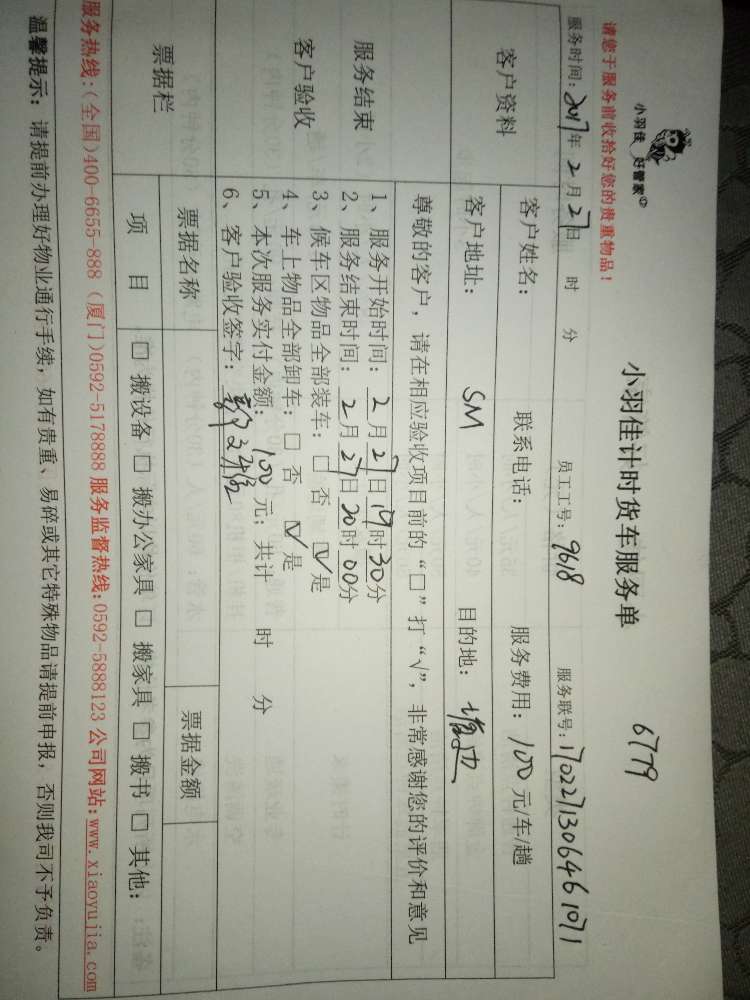 小羽佳 好管家
小羽佳计时货车服务单
6779
请您于服务前收拾好您的贵重物品！
服务时间：2017年2月27日 时 分 员工工号：9618 服务联号：1702271306461071
客户资料 客户姓名： 联系电话： 服务费用：100元/车/趟
客户地址： SM 目的地：
尊敬的客户，请在相应验收项目前的“□”打“√”，非常感谢您的评价和意见
服务结束
客户验收
1、服务开始时间：2月27日19时30分
2、服务结束时间：2月27日20时00分
3、候车区物品全部装车：□ 否 ☑ 是
4、车上物品全部卸车：□ 否 ☑ 是
5、本次服务实付金额：100元；共计 时 分
6、客户验收签字：
票据栏 票据名称 票据金额
项 目 □ 搬设备 □ 搬办公家具 □ 搬家具 □ 搬书 □ 其他：
服务热线：(全国)400-6655-888 (厦门)0592-5178888 服务监督热线：0592-5888123 公司网站：www.xiaoyujia.com
温馨提示：请提前办理好物业通行手续，如有贵重、易碎或其它特殊物品请提前申报，否则我司不予负责。